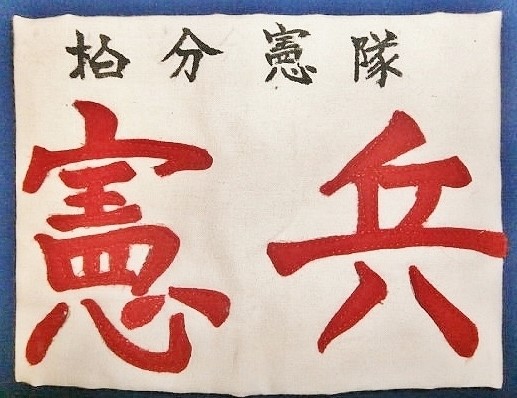 分憲隊
憲兵